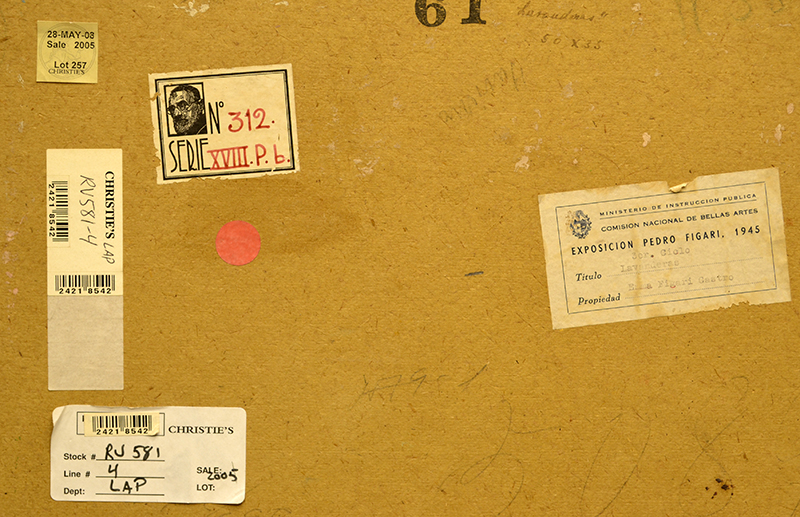 61
"Lavanderas"
50 x 35
28-MAY-08
Sale 2005
Lot 257
CHRISTIE'S
Nº 312.
SERIE XVIII.P.b.
CHRISTIE'S LAP
RV581-4
2421 8542
2421 8542
MINISTERIO DE INSTRUCCION PUBLICA
COMISION NACIONAL DE BELLAS ARTES
EXPOSICION PEDRO FIGARI, 1945
3er. Ciclo
Título Lavanderas
Propiedad Figari Castro
2421 8542
CHRISTIE'S
Stock # RV 581
Line # 4
SALE: 2005
Dept: LAP
LOT: